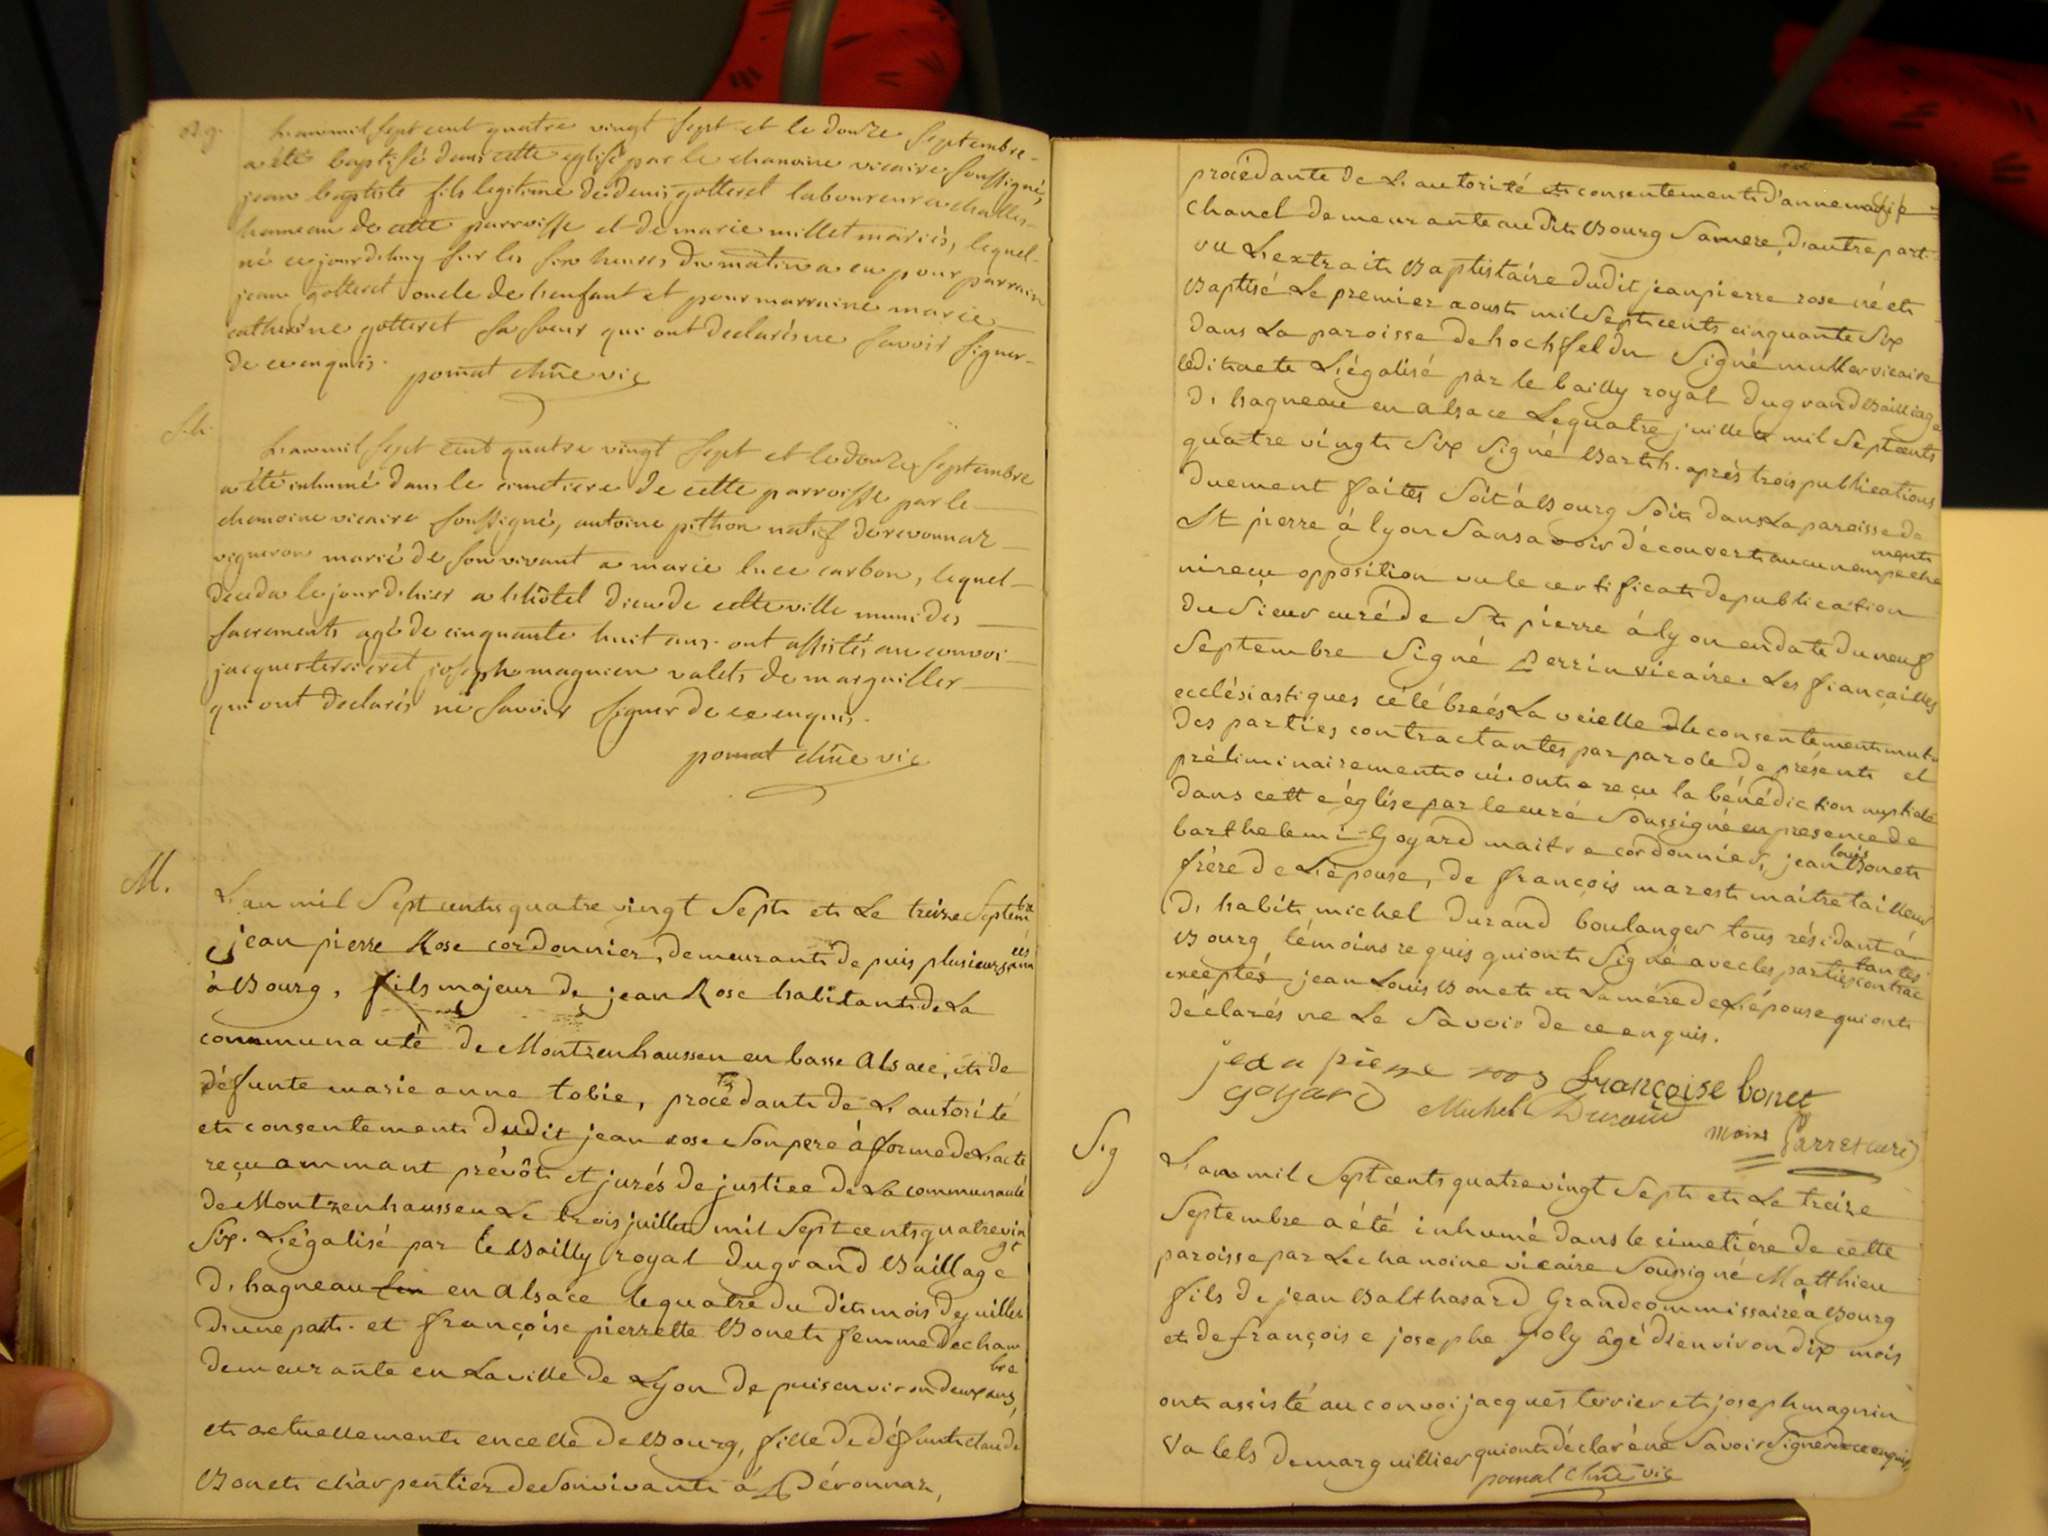 L'an mil sept cent quatre vingt sept et le douze septembre
a été baptisé dans cette eglise par le chanoine vicaire soussigné,
jean baptiste fils legitime de denis gotteret laboureur a challes
hameau de cette parroisse et de marie millet mariés, lequel
né ce jourdhuy sur les six heures du matin a eu pour parrain
jean gotteret oncle de l'enfant et pour marraine marie
catherine gotteret sa soeur qui ont declarés ne savoir signer
de ce enquis.
pomat chne vic
S.h.
L'an mil sept cent quatre vingt sept et le douze septembre
a été inhumé dans le cimetiere de cette parroisse par le
chanoine vicaire soussigné, antoine pithon natif de revonnaz
vigneron marié de son vivant a marie luce carbon, lequel
décéda le jour d'hier a l'hôtel dieu de cette ville muni des
sacrements agé de cinquante huit ans. ont assistés au convoi
jacques terrier et joseph magnien valets de marguiller
qui ont déclarés ne savoir signer de ce enquis.
pomat chne vic
M.
L'an mil sept cents quatre vingt sept et le treize septembre
jean pierre Rose cordonnier, demeurant depuis plusieurs années
à Bourg, fils majeur de jean Rose habitant de la
communauté de Montzenhaussen en basse Alsace, et de
défunte marie anne tobie, procédant de l'autorité
et consentement dudit jean rose son pere à forme de l'acte
reçu ammant prévôt et jurés de justice de la communauté
de Montzenhaussen le trois juillet mil sept cents quatre vingt
six. légalisé par le Bailly royal du grand Baillage
d'hagneau en Alsace le quatre du dit mois de juillet
d'une part. et françoise pierrette Bonet femme de chambre
demeurante en la ville de Lyon depuis environ deux ans,
et actuellement en celle de Bourg, fille de défunt claude
Bonet charpentier de son vivant à Révonnaz,
procédante de l'autorité et consentement d'anne marie
chanel demeurante au dit Bourg sa mere, d'autre part.
vu l'extrait Baptistaire dudit jean pierre rose né et
Baptisé le premier aoust mil sept cents cinquante six
dans la paroisse de hochfelden signé muller vicaire
ledit acte légalisé par le bailly royal du grand Bailliage
d'hagneau en alsace le quatre juillet mil sept cents
quatre vingt six signé Barth. après trois publications
duement faites soit à Bourg soit dans la paroisse de
St pierre à lyon sans avoir découvert aucun empêchement
ni reçu opposition vu le certificat de publication
du sieur curé de St pierre à lyon en date du neuf
septembre signé Perrin vicaire. les fiançailles
ecclésiastiques célébrées la veielle le consentement mutuel
des parties contractantes par parole de présent et
préliminairement oui ont reçu la bénédiction nuptiale
dans cette église par le curé soussigné en presence de
barthelemi Goyard maitre cordonnier, jean louis Bonet
frère de l'épouse, de françois marest maitre tailleur
d'habit, michel durand boulanger tous résidant à
Bourg témoins requis qui ont signé avec les parties contractantes
exceptés jean Louis Bonet et la mére de l'épouse qui ont
déclarés ne le savoir de ce enquis.
jean pierre roos françoise bonet
goyard Michel Durand
Sig
L'an mil sept cents quatre vingt sept et le treize
septembre a été inhumé dans le cimetiére de cette
paroisse par le chanoine vicaire soussigné Matthieu
fils de jean Balthasard Grand commissaire à Bourg
et de françoise josephe Joly âgé d'environ dix mois
ont assisté au convoi jacques terrier et joseph magnin
valets de marguillier qui ont déclaré ne savoir signer de ce enquis,
pomat chne vic